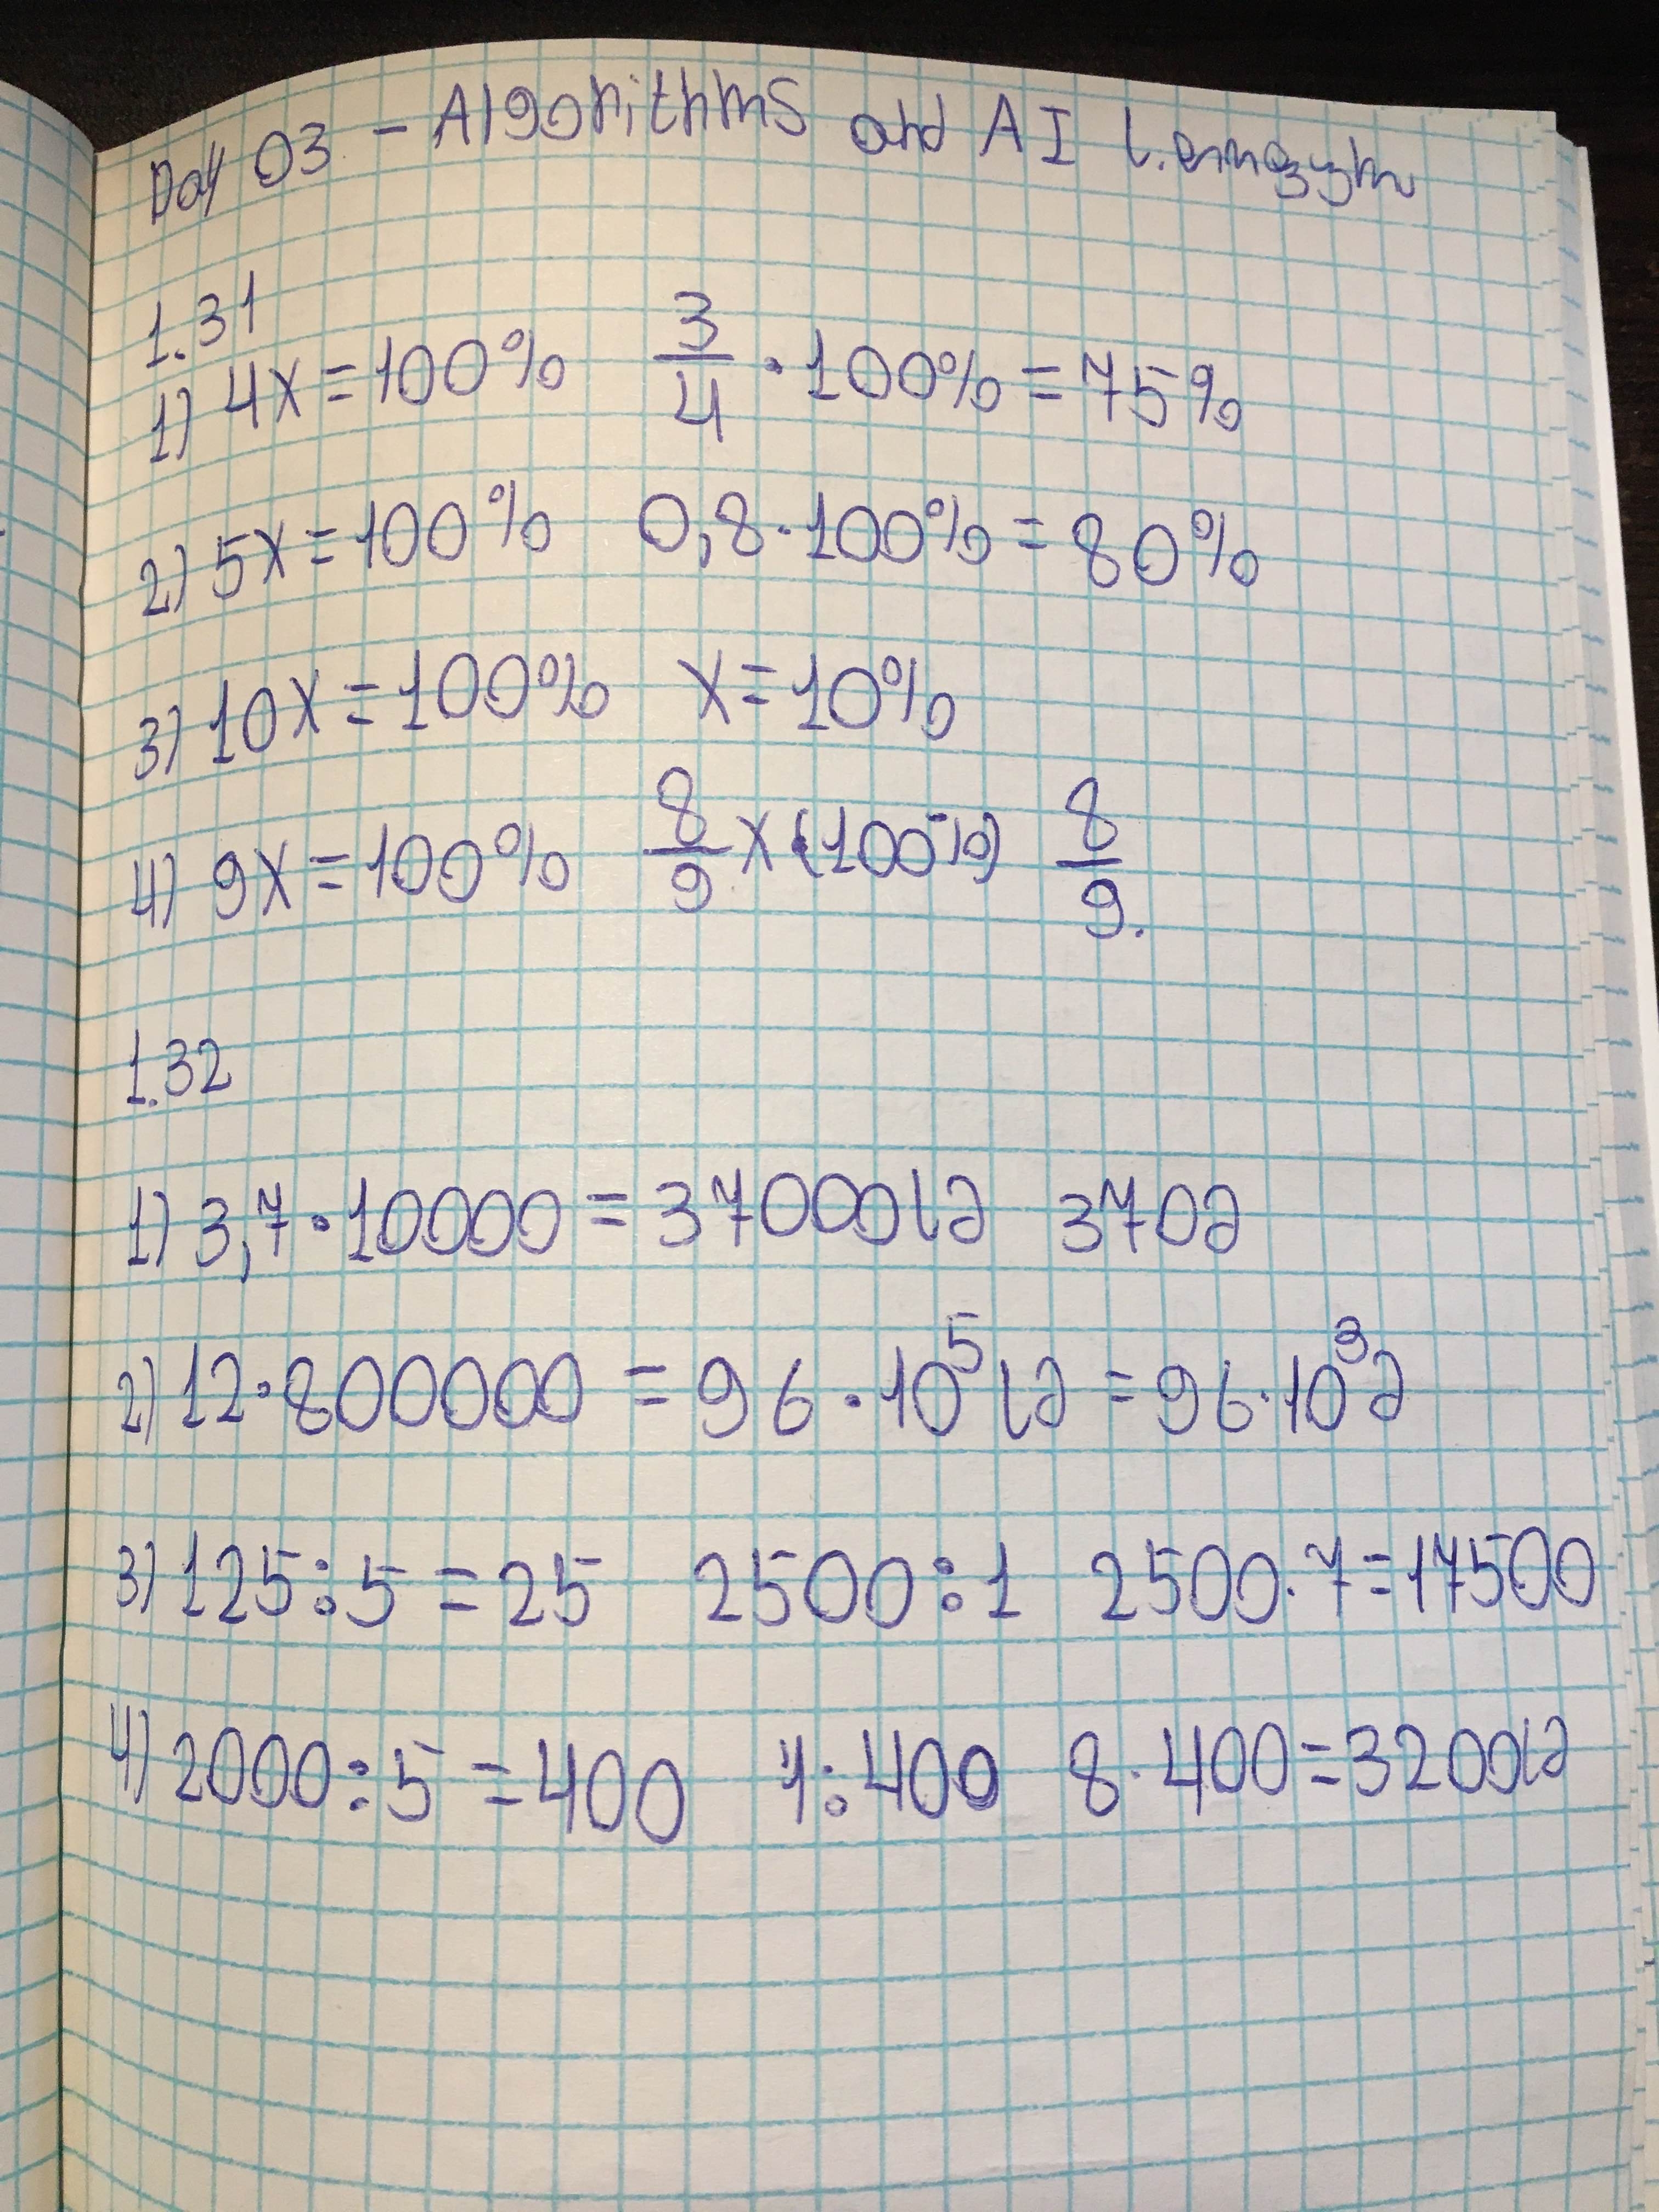 Day 03 - Algorithms and AI
1.31
1) 4x = 100% 3/4 · 100% = 75%
2) 5x = 100% 0,8 · 100% = 80%
3) 10x = 100% x = 10%
4) 9x = 100% 8/9 x (100%) 8/9.
1.32
1) 3,7 · 10000 = 37000սմ 370մ
2) 12 · 800000 = 96 · 10⁵սմ = 96 · 10³մ
3) 125 : 5 = 25 2500 : 1 2500 · 7 = 17500
4) 2000 : 5 = 400 1 : 400 8 · 400 = 3200սմ